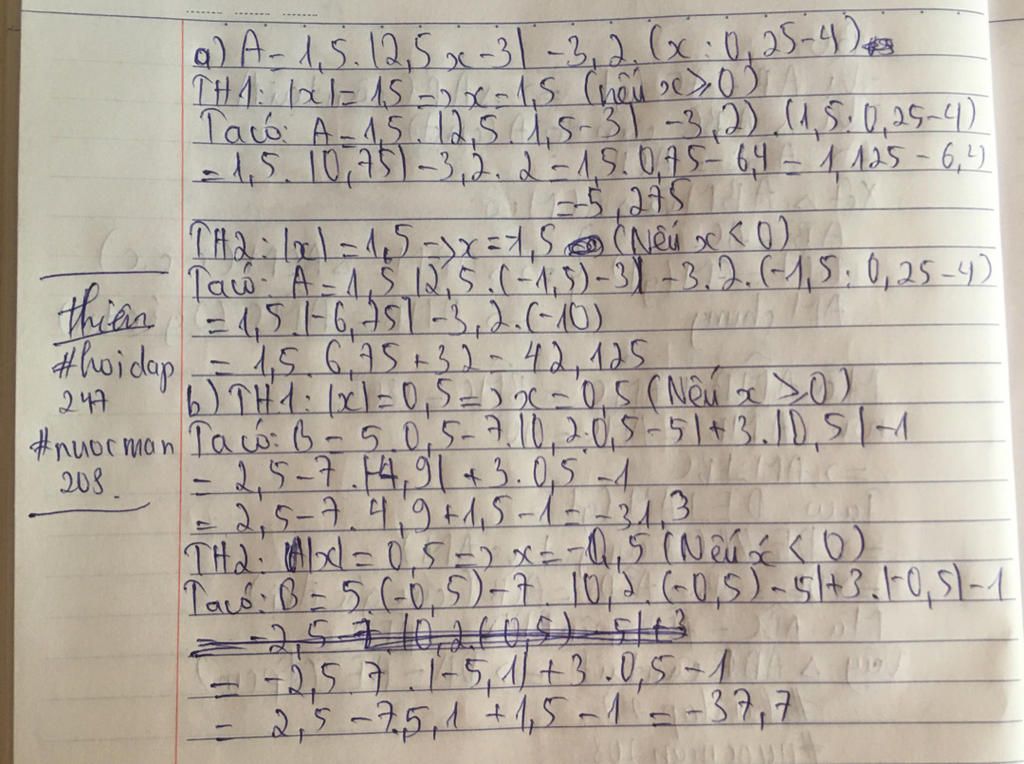 a) A = 1,5. |2,5 x - 3| - 3,2. (x : 0,25 - 4)
TH1: |x| = 1,5 => x = 1,5 (nếu x ≥ 0)
Ta có: A = 1,5. |2,5. 1,5 - 3| - 3,2). (1,5 : 0,25 - 4)
= 1,5. |0,75| - 3,2. 2 = 1,5. 0,75 - 6,4 = 1,125 - 6,4
= -5,275
TH2: |x| = 1,5 => x = -1,5 (Nếu x < 0)
Ta có: A = 1,5 |2,5. (-1,5) - 3| - 3.2. (-1,5 : 0,25 - 4)
= 1,5. |-6,75| - 3,2. (-10)
= 1,5. 6,75 + 32 = 42,125
b) TH1: |x| = 0,5 => x = 0,5 (Nếu x ≥ 0)
Ta có: B = 5. 0,5 - 7. |0,2. 0,5 - 5| + 3. |0,5| - 1
= 2,5 - 7. |-4,9| + 3. 0,5 - 1
= 2,5 - 7. 4,9 + 1,5 - 1 = -31,3
TH2: |x| = 0,5 => x = -0,5 (Nếu x < 0)
Ta có: B = 5. (-0,5) - 7. |0,2. (-0,5) - 5| + 3. |-0,5| - 1
= -2,5 7. |0,2.(-0,5) - 5| + 3
= -2,5. 7. |-5,1| + 3. 0,5 - 1
= 2,5 - 7.5,1 + 1,5 - 1 = -37,7
thiên
#hoidap
247
#nuocman
208.